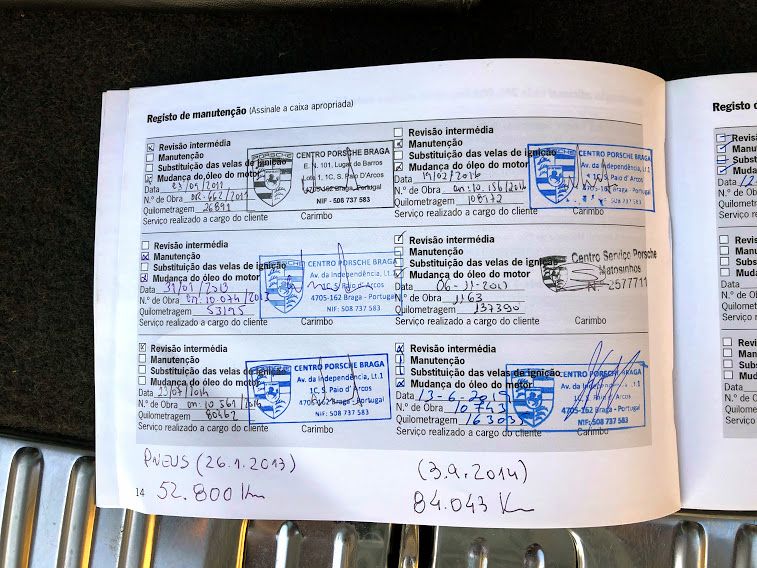 Registo de manutenção (Assinale a caixa apropriada)
Revisão intermédia
Manutenção
Substituição das velas de ignição
Mudança do óleo do motor
Data 23/09/2011
N.º de Obra OR-662/2011
Quilometragem 26891
Serviço realizado a cargo do cliente Carimbo
PORSCHE
CENTRO PORSCHE BRAGA
E. N. 101, Lugar de Barros
Lote 1, 1C, S. Paio D'Arcos
4705-162 Braga - Portugal
NIF - 508 737 583
Revisão intermédia
Manutenção
Substituição das velas de ignição
Mudança do óleo do motor
Data 19/02/2016
N.º de Obra on: 10.156/2016
Quilometragem 108972
Serviço realizado a cargo do cliente Carimbo
CENTRO PORSCHE BRAGA
Av. da Independência, Lt.1
1C, S. Paio d' Arcos
4705-162 Braga - Portugal
NIF: 508 737 583
Revisão intermédia
Manutenção
Substituição das velas de ignição
Mudança do óleo do motor
Data 31/01/2013
N.º de Obra on: 10.074/2013
Quilometragem 53195
Serviço realizado a cargo do cliente Carimbo
CENTRO PORSCHE BRAGA
Av. da Independência, Lt.1
1C, S. Paio d' Arcos
4705-162 Braga - Portugal
NIF: 508 737 583
Revisão intermédia
Manutenção
Substituição das velas de ignição
Mudança do óleo do motor
Data 06-11-2017
N.º de Obra 1163
Quilometragem 137390
Serviço realizado a cargo do cliente Carimbo
Centro Service Porsche
Matosinhos
Revisão intermédia
Manutenção
Substituição das velas de ignição
Mudança do óleo do motor
Data 23/07/2014
N.º de Obra on: 10 561/2014
Quilometragem 80462
Serviço realizado a cargo do cliente Carimbo
CENTRO PORSCHE BRAGA
Av. da Independência, Lt.1
1C, S. Paio d' Arcos
4705-162 Braga - Portugal
NIF: 508 737 583
Revisão intermédia
Manutenção
Substituição das velas de ignição
Mudança do óleo do motor
Data 13-6-2019
N.º de Obra 10743
Quilometragem 163033
Serviço realizado a cargo do cliente Carimbo
CENTRO PORSCHE BRAGA
Av. da Independência, Lt.1
1C, S. Paio d' Arcos
4705-162 Braga - Portugal
NIF: 508 737 583
PNEUS (26.1.2013)
52.800 Km
(3.9.2014)
84.043 Km
14
Registo d
Revis
Manu
Subst
Muda
Data
N.º de Ob
Quilomet
Serviço r
Revis
Manu
Subst
Muda
Data
N.º de Ob
Quilomet
Serviço re
Revis
Manu
Subst
Muda
Data
N.º de Ob
Quilomet
Serviço re